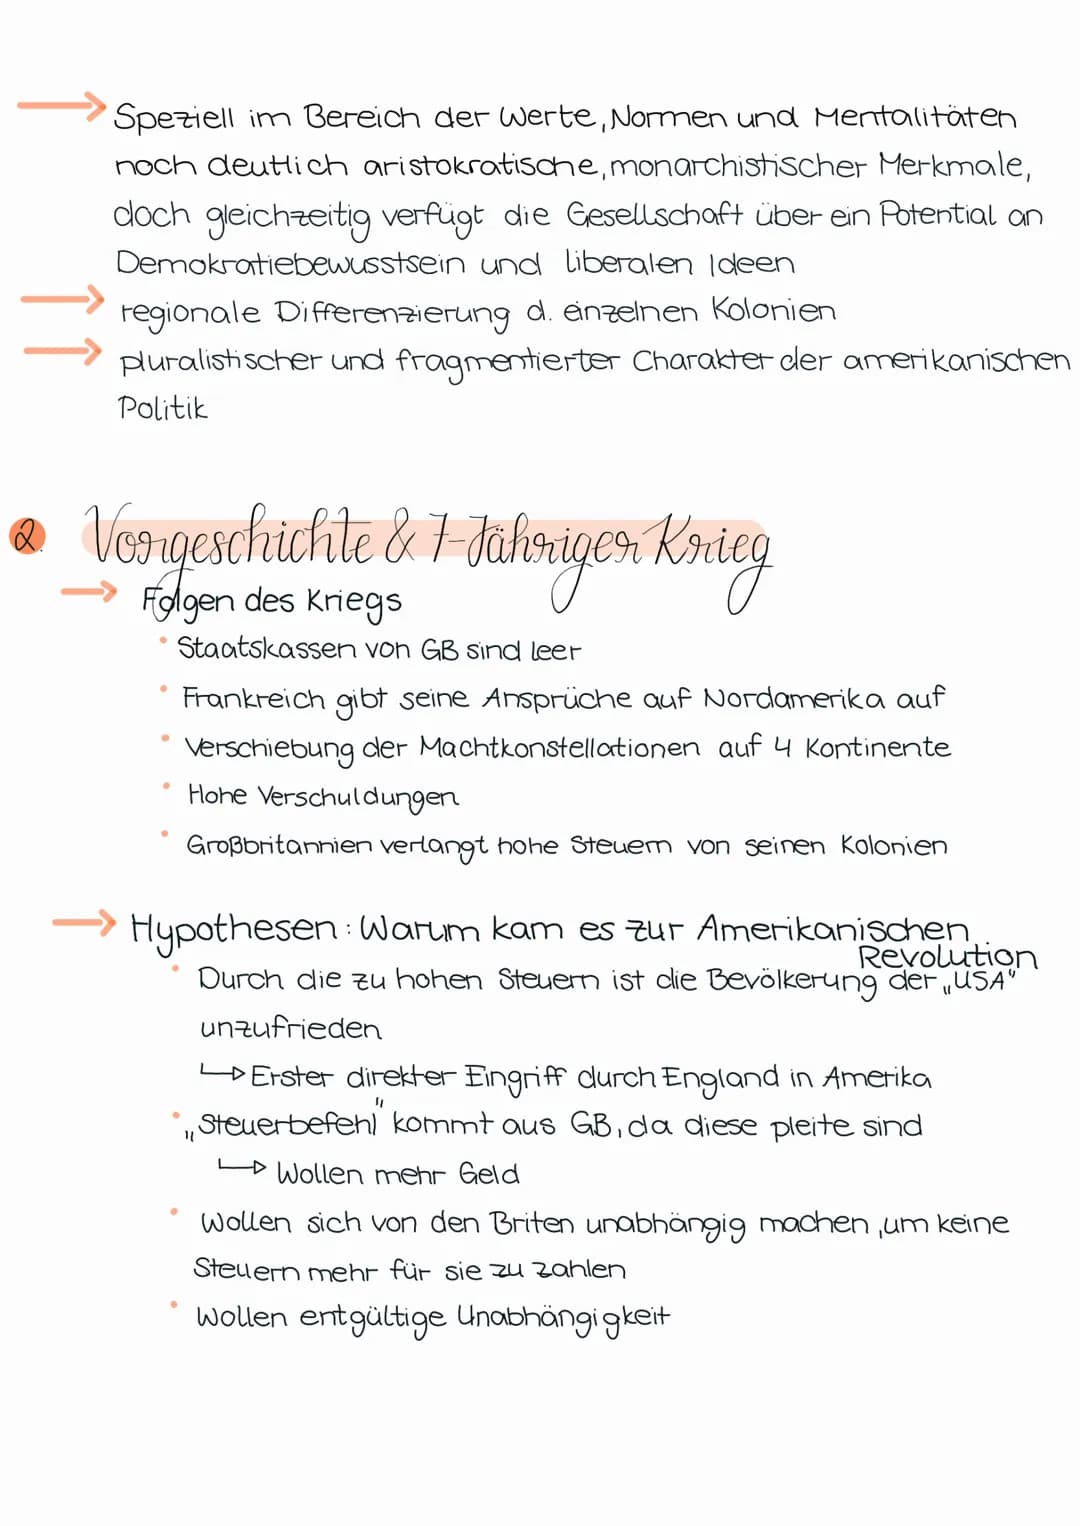 → Speziell im Bereich der Werte, Normen und Mentalitäten
noch deutlich aristokratische, monarchistischer Merkmale,
doch gleichzeitig verfügt die Gesellschaft über ein Potential an
Demokratiebewusstsein und liberalen Ideen
→ regionale Differenzierung d. einzelnen Kolonien
→ pluralistischer und fragmentierter Charakter der amerikanischen
Politik
2. Vorgeschichte & 7-Jähriger Krieg
→ Folgen des Kriegs
• Staatskassen von GB sind leer
• Frankreich gibt seine Ansprüche auf Nordamerika auf
• Verschiebung der Machtkonstellationen auf 4 Kontinente
• Hohe Verschuldungen
• Großbritannien verlangt hohe Steuern von seinen Kolonien
→ Hypothesen: Warum kam es zur Amerikanischen
Revolution
• Durch die zu hohen Steuern ist die Bevölkerung der „USA"
unzufrieden
↳ Erster direkter Eingriff durch England in Amerika
• „Steuerbefehl" kommt aus GB, da diese pleite sind
↳ Wollen mehr Geld
• Wollen sich von den Briten unabhängig machen, um keine
Steuern mehr für sie zu zahlen
• Wollen entgültige Unabhängigkeit